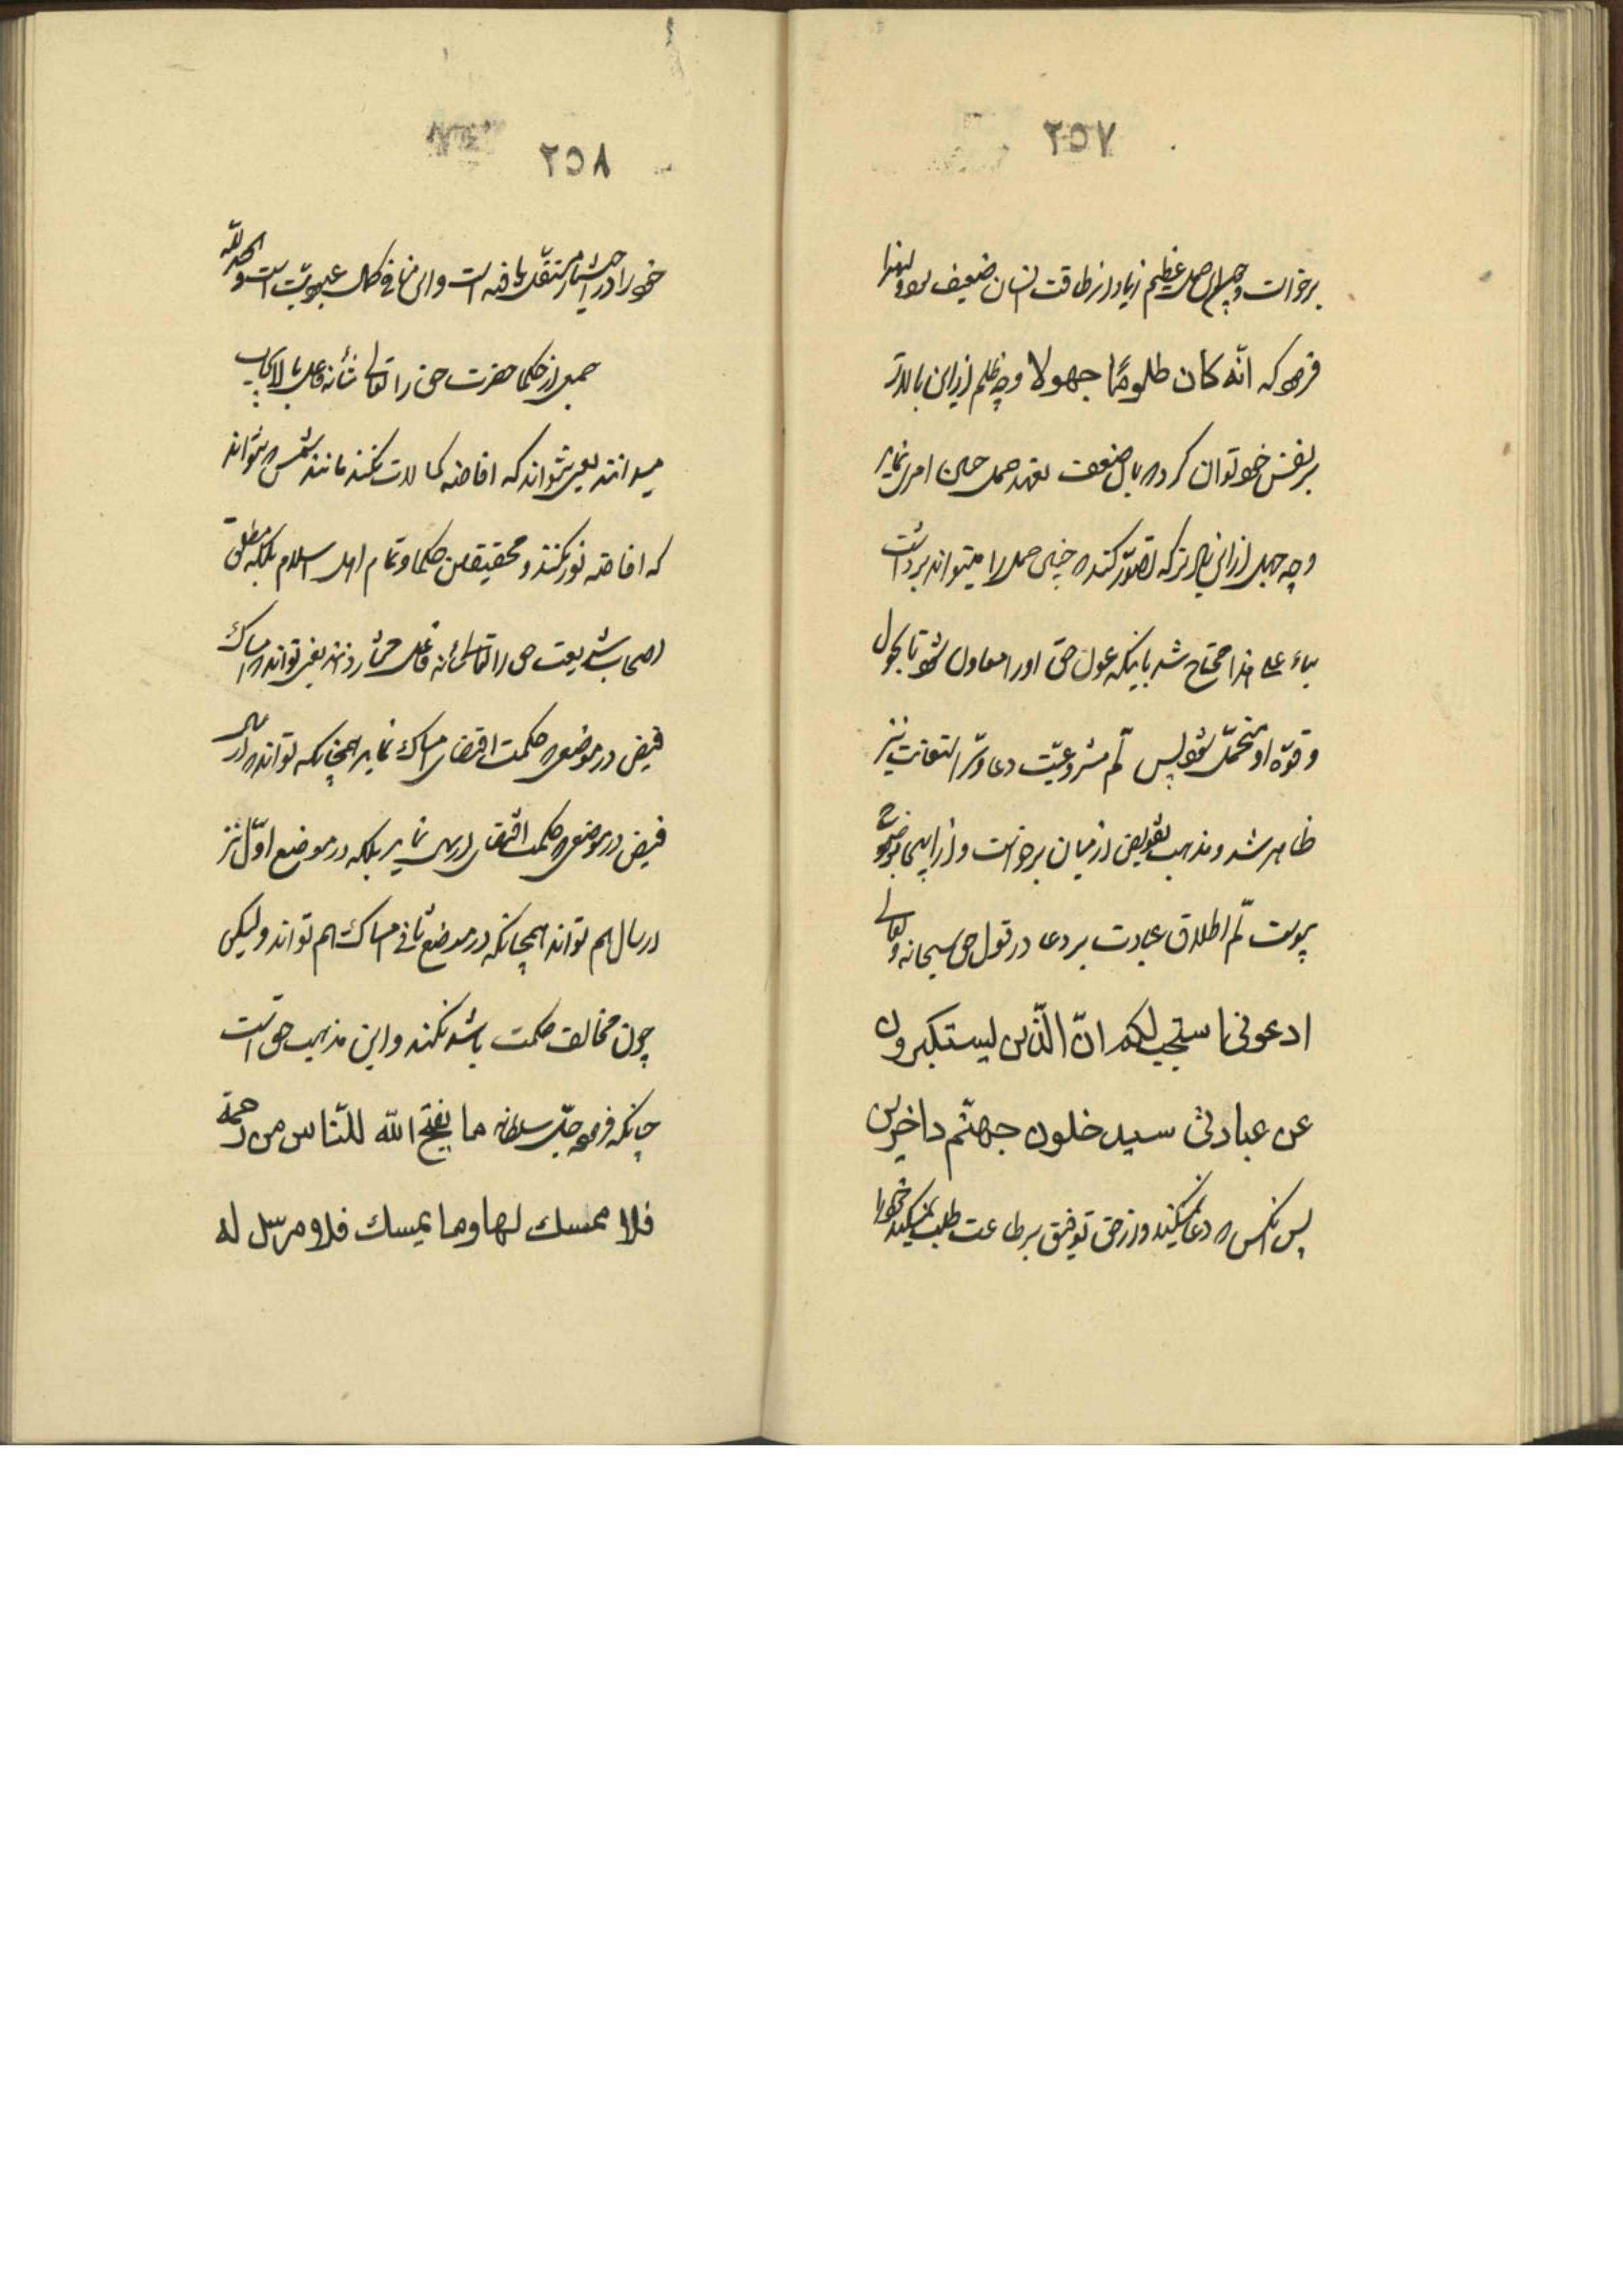 ٢٥٧
برخاست و چه این حمل عظیم زیاده از طاقت انسان ضعیف بود لهذا
فرموده که انّه کان ظلومًا جهولا و چه ظلم ازین بالاتر
بر نفس خود توان کرد که با این ضعف تعهد حمل چنین امری نماید
و چه جهل ازین بالاتر که تصوّر کند که چنین حمل را میتواند برداشت
بناء علی هذا محتاج شد باینکه عول حق او را معاون شود تا بحول
و قوّه او متحمّل شود پس سرّ مشروعیّت دعا و سرّ استعانت نیز
ظاهر شد و مذهب تفویض از میان برخاست و از اینجا بوضوح
پیوست سرّ اطلاق عبادت بر دعا در قول حق سبحانه و تعالی
ادعونی استجب لکم انّ الّذین یستکبرون
عن عبادتی سیدخلون جهنّم داخرین
پس آنکس که دعا نمیکند و از حق توفیق بر طاعت طلب نمیکند خود را
٢٥٨
خود را در اختیار مستقل یافته است و این منافی کمال عبودیّت است و الحمد للّه
جمعی از حکما حضرت حق را تعالی شأنه فاعل بالایجاب
میدانند یعنی نتواند که افاضه کمالات نکند مانند شمس که نتواند
که افاضه نور نکند و محققین حکما و تمام اهل اسلام بلکه مطلق
اصحاب شریعت حق را تعالی شأنه فاعل مختار دانند یعنی تواند که امساک
فیض در موضعی که حکمت اقتضای امساک نماید همچنانکه تواند که ارسال
فیض در موضعی که حکمت اقتضای ارسال نماید بلکه در موضع اوّل نیز
ارسال هم تواند همچنانکه در موضع ثانی امساک هم تواند ولیکن
چون مخالف حکمت باشد نکند و این مذهب حق است
چنانکه فرموده جلّ سلطانه ما یفتح اللّه للنّاس من رحمة
فلا ممسك لها وما یمسك فلا مرسل له